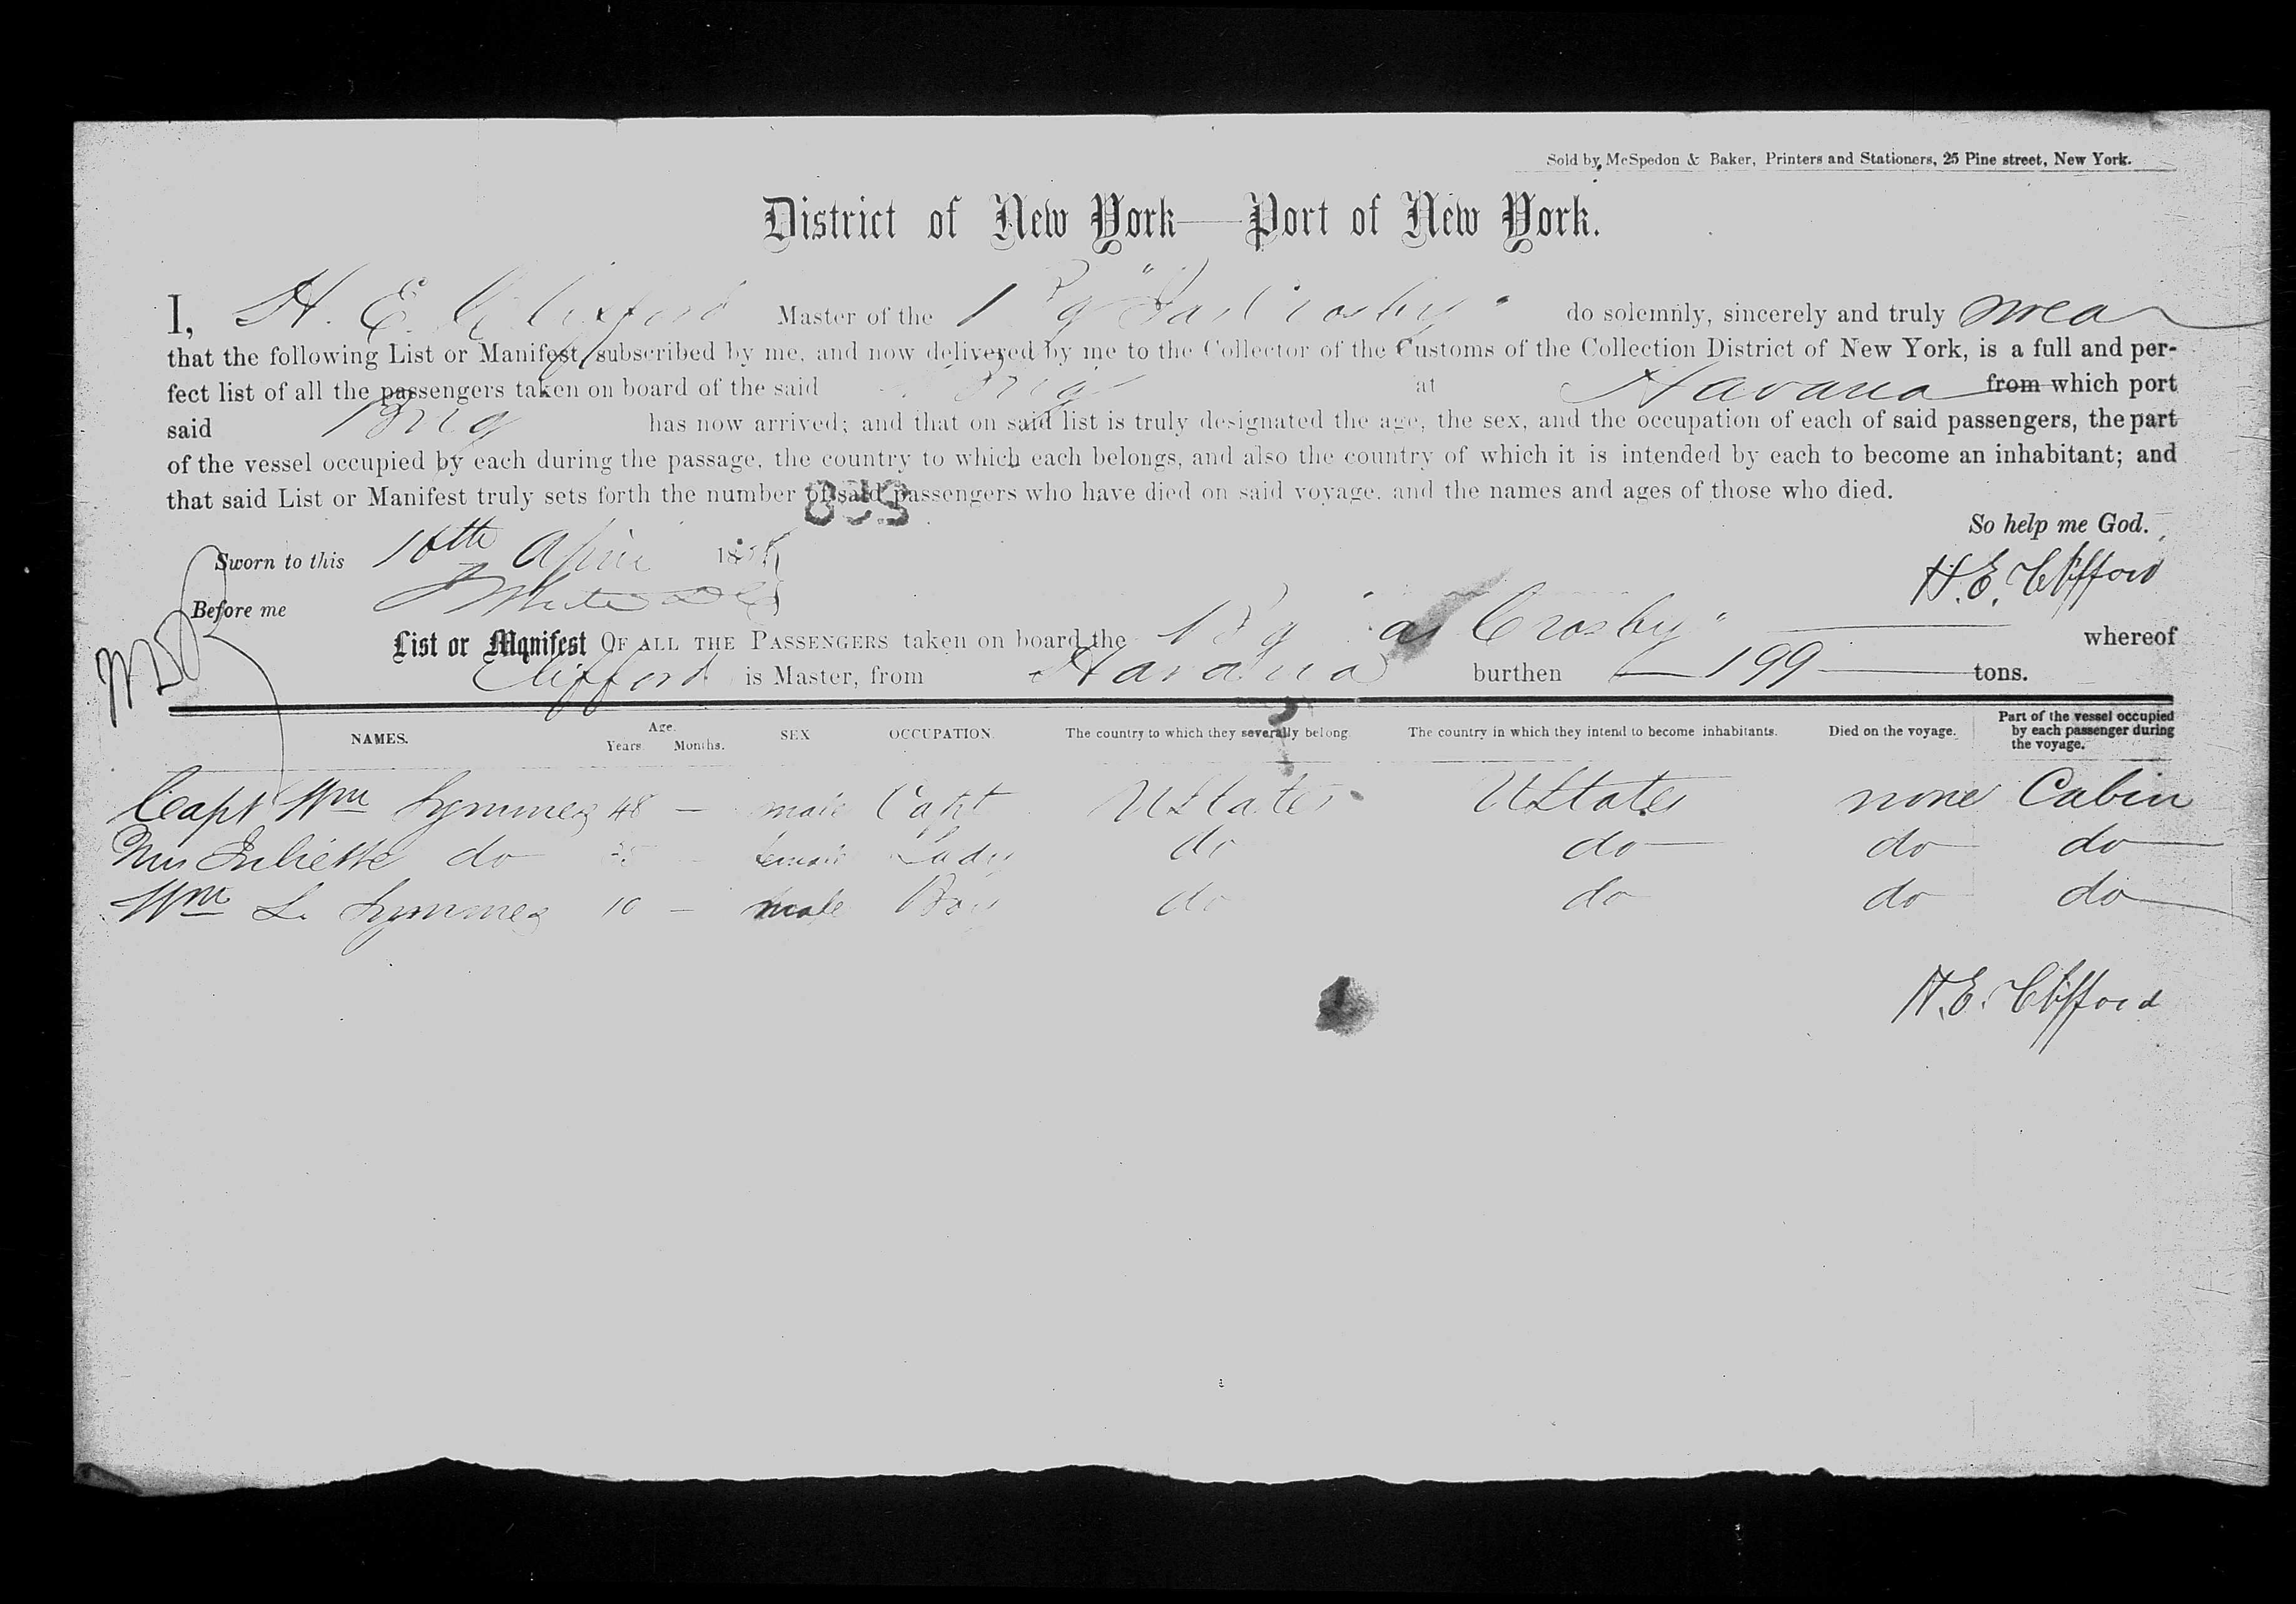 Sold by McSpedon & Baker, Printers and Stationers, 25 Pine street, New York.
District of New York—Port of New York.
I, H. E. Clifford Master of the Brig "Jas Crosby" do solemnly, sincerely and truly swear
that the following List or Manifest, subscribed by me, and now delivered by me to the Collector of the Customs of the Collection District of New York, is a full and per-
fect list of all the passengers taken on board of the said Brig at Havana from which port
said Brig has now arrived; and that on said list is truly designated the age, the sex, and the occupation of each of said passengers, the part
of the vessel occupied by each during the passage, the country to which each belongs, and also the country of which it is intended by each to become an inhabitant; and
that said List or Manifest truly sets forth the number of said passengers who have died on said voyage, and the names and ages of those who died.
So help me God.
Sworn to this 16th April 185
H. E. Clifford
Before me
List or Manifest OF ALL THE PASSENGERS taken on board the Brig "Jas Crosby" whereof
Clifford is Master, from Havana burthen 199 tons.
NAMES. Age. Years. Months. SEX OCCUPATION. The country to which they severally belong. The country in which they intend to become inhabitants. Died on the voyage. Part of the vessel occupied by each passenger during the voyage.
Capt Wm Symmes 48 — male Capt UStates UStates none Cabin
Mrs Juliette do — female Lady do do do do
Wm L. Symmes 10 — male Boy do do do do
H. E. Clifford